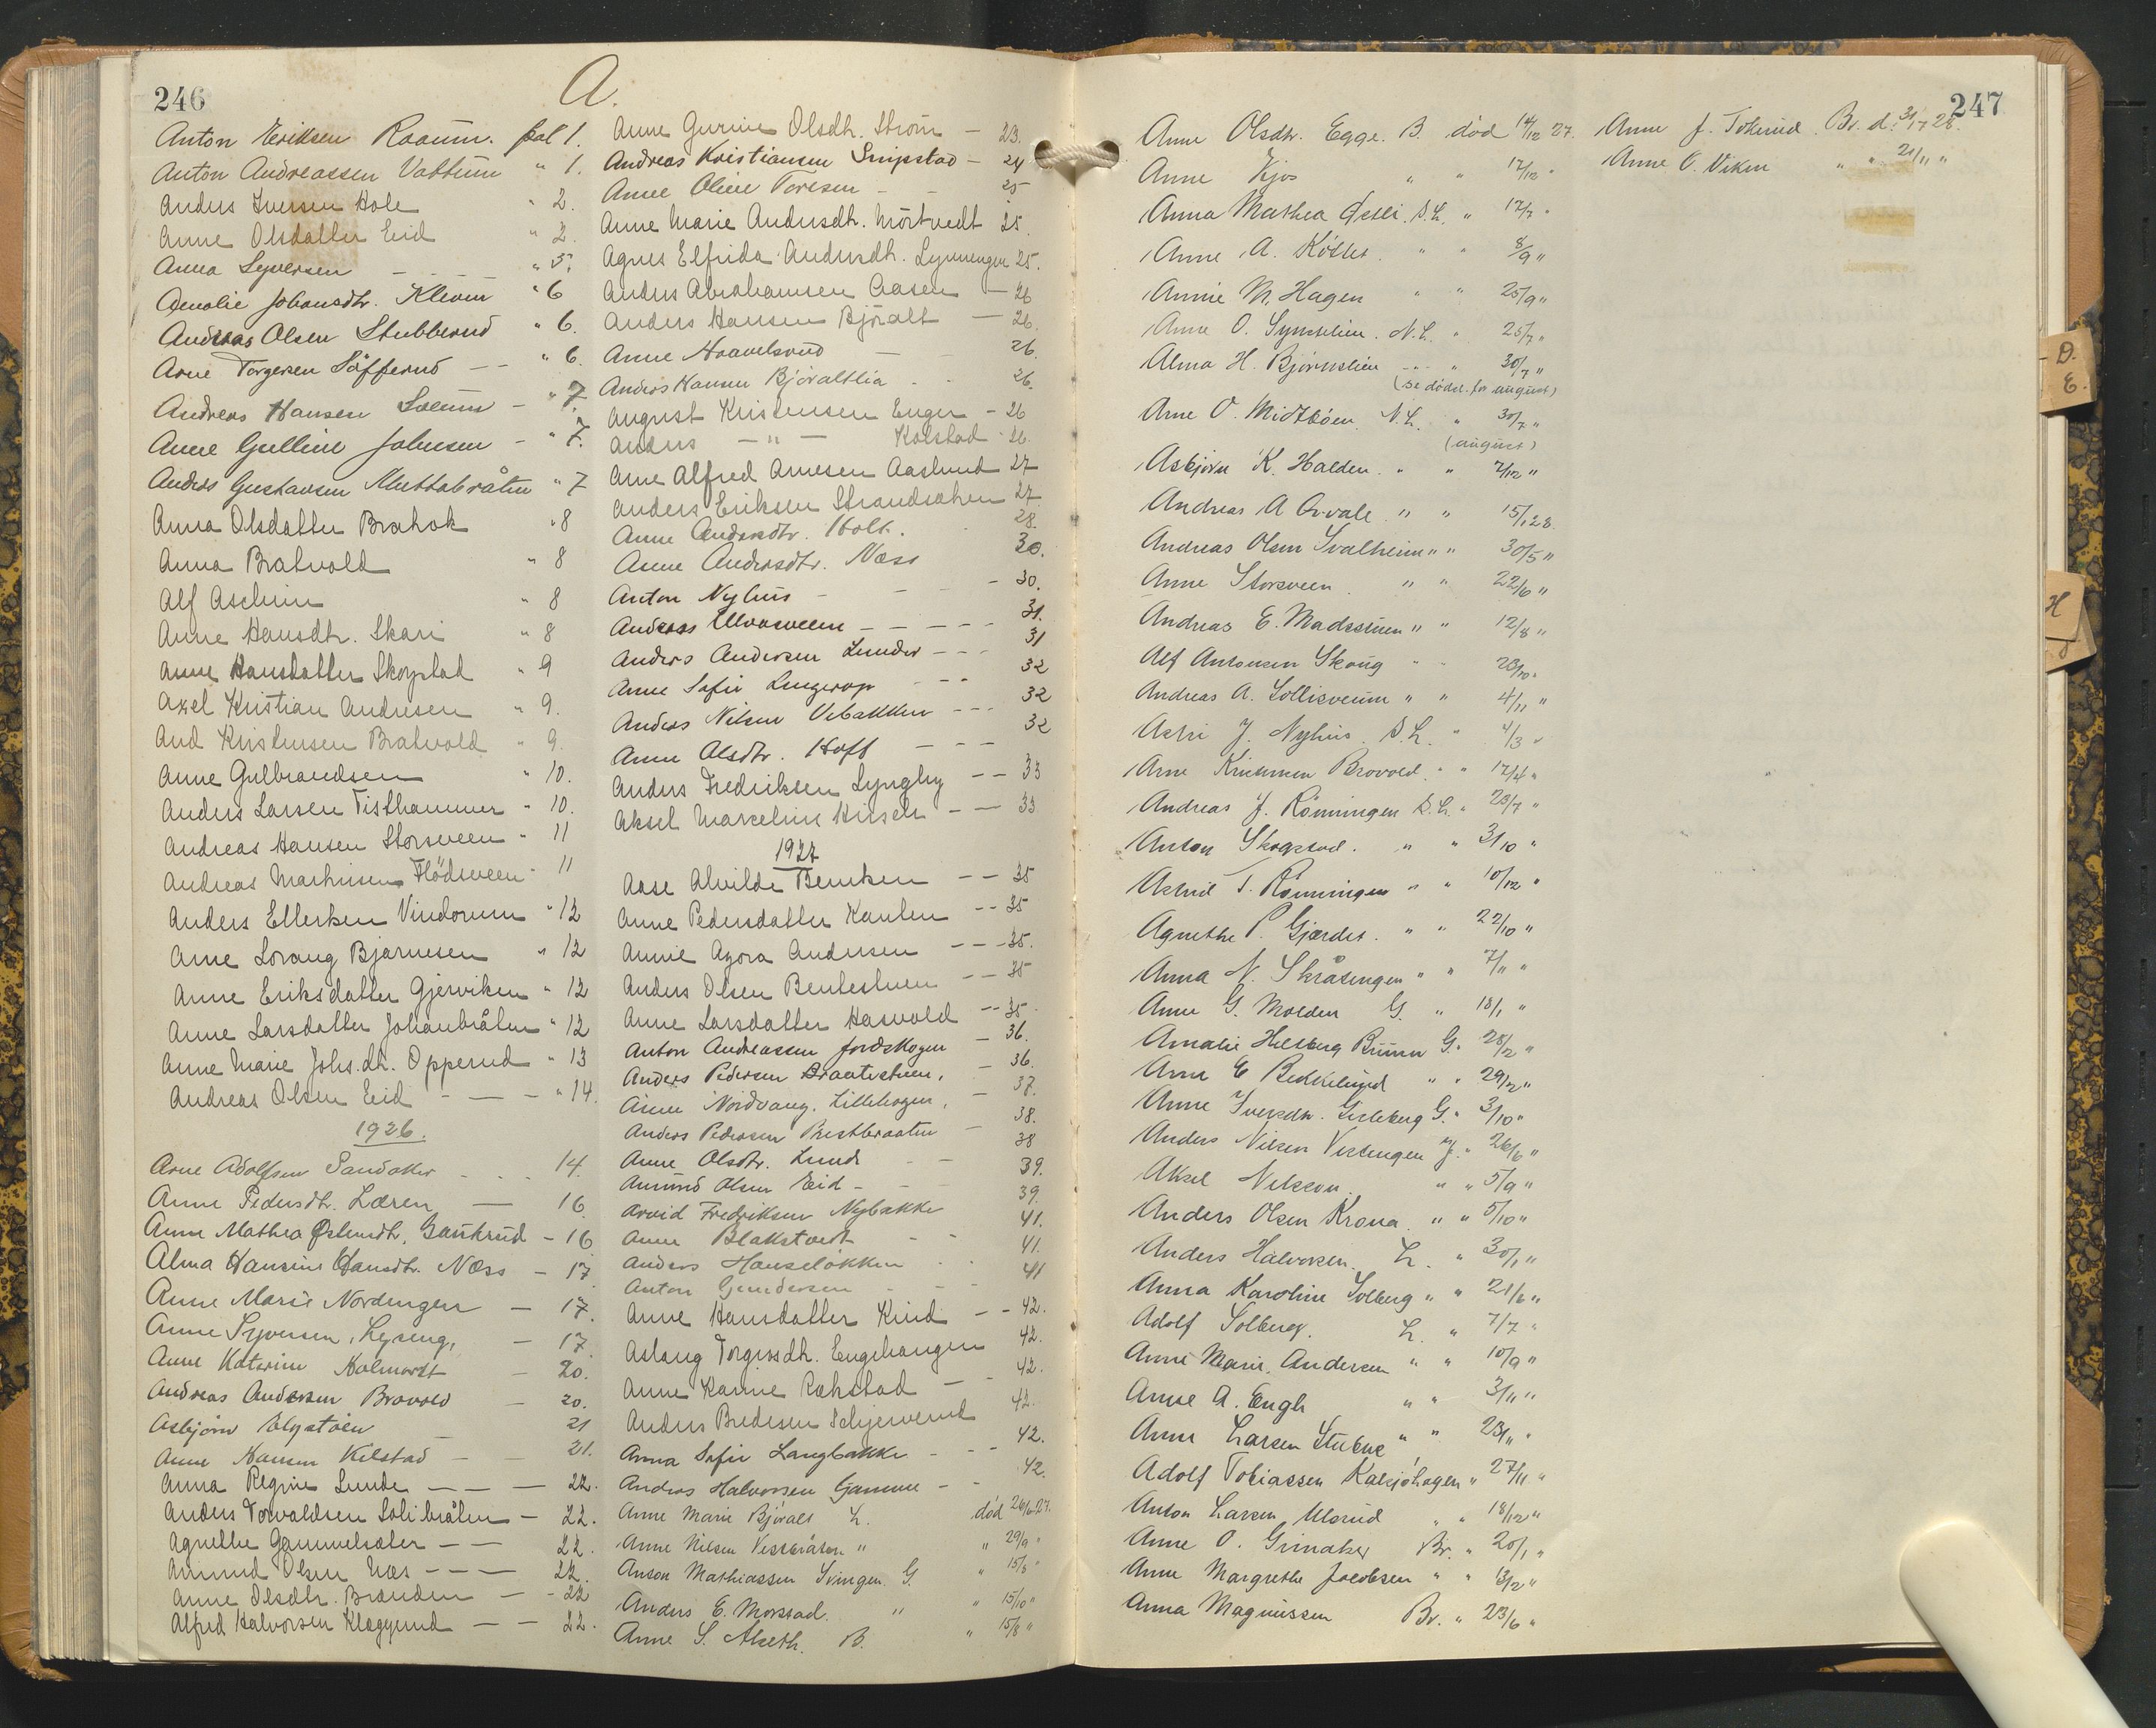 246
A.
Anton Eriksen Raaum. fol 1.
Anton Andreassen Vattum " 1.
Anders Iversen Hole " 2.
Anne Olsdatter Eid " 2.
Anna Syversen - - - " 5.
Amalie Johansdtr. Kleven " 6
Andreas Olsen Stubberud " 6.
Arne Torgersen Söfferud - - " 6
Andreas Hansen - " 7.
Anne Gulline Johnsen - " 7.
Anders Gustavsen " 7
Anna Olsdatter " 8
Anna Bratvold " 8
Alf Ascheim " 8
Anne Hansdtr. Skari " 8
Anne Hansdatter Skogstad " 9
Axel Kristian Andresen " 9.
And Kristensen Bratvold " 9.
Anne Gulbrandsen " 10.
Anders Larsen Tisthammer " 10.
Andreas Hansen Storsveen " 11
Andreas Mathisen Flödsveen " 11
Anders Ellefsen Vindorum " 12
Arne Lorang Bjarnesen " 12
Anne Eriksdatter Gjerviken " 12
Anne Larsdatter Johanbråten " 12
Anne Marie Johs.dtr. Opperud " 13
Andreas Olsen Eid - - - " 14.
1926.
Arne Adolfsen Sandaker - - - 14.
Anne Pedersdtr. Læren - 16
Anne Mathea Østensdtr. Gaukrud - 16
Alma Hansine Hansdtr. Næss - 17
Anne Marie Nordengen - 17.
Anne Syversen, Lyseng, - 17.
Anne Katerine Holmertt - 20.
Andreas Andersen Brovold - 20.
Asbjørn Elgstøen 21
Anne Hansen Kilstad - - 21.
Anna Regine Lunde - - - 22.
Anders Torvaldsen Solibråten - 22.
Agnethe Gammelsæter - - 22.
Amund Olsen Næs - - - 22.
Anne Olsdtr. Brenden - - 22
Alfred Halvorsen Kleggerud - - 22.
Anne Gurine Olsdtr. Strøm - 23.
Andreas Kristiansen Snipstad - 24
Anne Oline Toresen - - 25
Anne Marie Andersdtr. Mörtvedt 25.
Agnes Elfrida Andersdtr. Lynnengen 25.
Anders Abrahamsen Aasen - 26
Anders Hansen Björalt - 26.
Anne Haavelsrud - 26.
Anders Hansen Björaltlia - - 26.
August Kristensen Enger - 26
Anders - " - Kolstad - 26.
Arne Alfred Arnesen Aaslund 27
Anders Eriksen Strandbakken 27.
Anne Andersdtr. Holt. 28.
Anne Andersdtr. Næss 30.
Anton Nyhus - - - 30.
Andreas Ulvaaveen - - - - - 31.
Anders Andersen Lunder - - - 31
Anne Sofie Lingerop - - - 32
Anders Nilsen Vebakken - - - 32
Anne Olsdtr. Hoff - - - 32
Anders Fredriksen Lyngby - - 33
Aksel Marcelius Hirsch - - 33
1927
Aase Alvilde Bentsen - - 35
Anne Pedersdatter Kanten - - 35
Annie Agora Andersen - - - 35.
Anders Olsen Bentestuen - - 35
Anne Larsdatter Hasvold - - 35.
Anton Andreassen Jordskogen - 36.
Anders Pedersen Braatestuen, - 36.
Anne Nordvang, Lillehagen, - 37.
Anders Pedersen Prestbraaten - 38.
Anne Olsdtr. Lunde - - 38
Amund Olsen Eid - - 39.
Arvid Fredriksen Nybakke 39.
Anne Blakstvedt - - 41.
Anders Hanseløkken - - 41.
Anton Gundersen - - 41
Anne Hansdatter Kind - - 42.
Aslaug Torgersdtr. Engehaugen 42.
Anne Karine Rækstad - - 42.
Anders Bredesen Schjerverud 42.
Anna Sofie Langbakke - - - 42.
Andreas Halvorsen Gamme - - 42.
Anne Marie Björalt L. død 26/6 27.
Anne Nilsen Vestbråten " " 29/9 "
Anton Mathiassen Svingen G. " 15/5 "
Anders E. Morstad. " " 15/10 "
Anne S. Alseth B. " 15/8 "
247
Anne Olsdtr. Egge. B. død 14/12 27.
Anne Kjos " " 17/12 "
Anna Mathea Østli. S.L. " 17/7 "
Anne A. " " 8/9 "
Annie M. Hagen " " 25/9 "
Anne O. Synstelien. N.L. " 25/7 "
Alma H. Bjørnslien - - - " 30/7 "
(se døde. for august)
Arne O. Midtbøen. N.L. " 30/7 "
(august)
Asbjørn K. Halden. " " 7/12 "
Andreas A Orvale " " 15/1 28.
Andreas Olsen Svalheim " " 30/5 "
Anne Storsveen " " 22/6 "
Andreas E. Madsstuen " " 12/8 "
Alf Antonsen Skoug " " 28/10 "
Andreas A. Sollisveum " " 4/11 "
Astri J. Nyhus. S.L. " 4/3 "
Arne Kristensen Brovold. " " 17/4 "
Andreas J. Rönningen S.L. " 23/7 "
Anton Skogstad. " " 3/10 "
Astrid T. Rönningen " " 10/12 "
Agnethe P. Gjærdet. " " 22/10 "
Anna N. Skråtengen " " 7/11 "
Anne G. Molden G. " 18/1 "
Amalie Helsberg Bruun G. " 28/2 "
Anne E Bekkelund " " 29/2 "
Anne Iversdtr. Gisleberg G. " 3/10 "
Anders Nilsen Vestengen G. " 26/6 "
Aksel Nelsson. " " 5/9 "
Anders Olsen Krona " " 5/10 "
Anders Halvorsen. L. " 30/1 "
Anna Karoline Solberg " " 21/6 "
Adolf Solberg. L. " 7/7 "
Anne Marie Andersen " " 10/9 "
Anne A. Engh " " 3/11 "
Anne Larsen Stubne " " 23/11 "
Adolf Tobiassen Kalsjöhagen " 27/11 "
Anton Larsen Ulsrud " " 18/12 "
Anne O. Grinaker Br. " 20/1 "
Anne Margrethe Jacobsen " " 13/2 "
Anna Magnussen Br. " 23/6 "
Anne J. Tokerud Br. d. 31/7 28.
Anne O. Viken " " 21/11 "
D.
E.
H